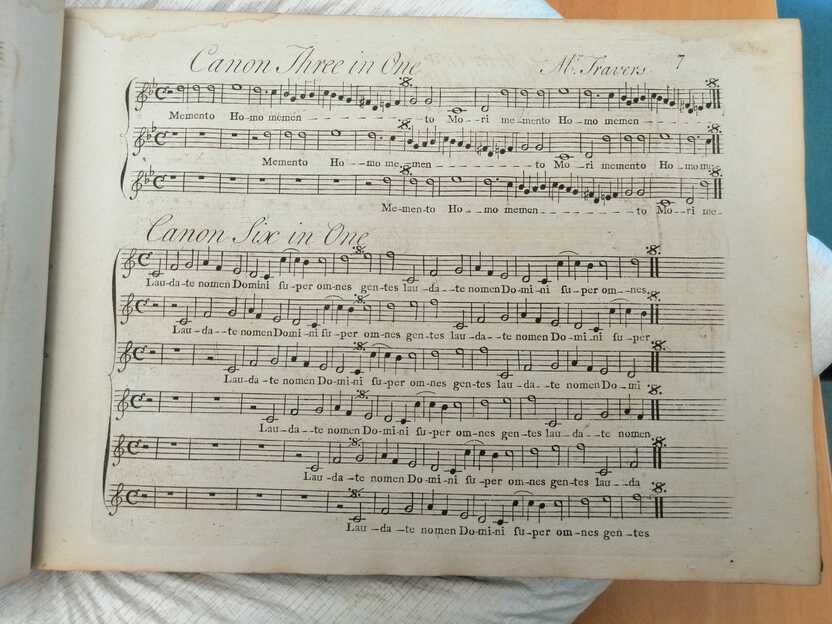 Canon Three in One Mr. Travers 7
Memento Ho-mo memen - - - - - - - - - to Mo - - ri me-mento Ho-mo memen - - - - - -
Memento Ho - - mo me-men - - - - - - - - - to Mo - - ri memento Ho-mo me-
Me-men-to Ho - - mo memen - - - - - - - - - to Mo--ri me-
Canon Six in One
Lau-da-te nomen Domini su-per om-nes gen-tes lau-da--te nomen Do-mi-ni su-per om--nes
Lau-da--te nomen Domi-ni su-per om-nes gen-tes lau-da--te nomen Do-mi-ni su-per
Lau-da-te nomen Do-mi-ni su-per om-nes gen-tes lau-da--te nomen Do-mi
Lau-da--te nomen Do-mi-ni su-per om-nes gen-tes lau-da--te nomen
Lau-da-te nomen Do-mi-ni su-per om-nes gen-tes lau--da
Lau-da-te nomen Do-mi-ni su-per om-nes gen-tes